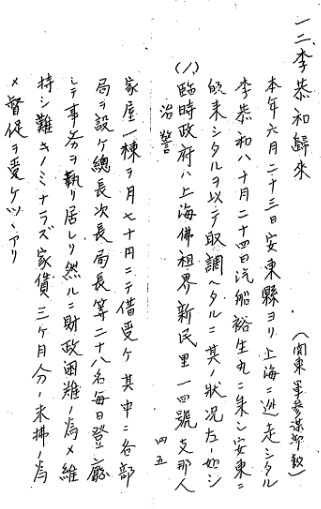 一二、李恭和歸來
（関東軍参謀部報）
本年六月二十三日安東縣ヨリ上海ニ逃走シタル
李恭和ハ十月二十四日汽船裕生丸ニ乗シ安東ニ
皈来シタルヲ以テ取調ヘタルニ其ノ状况左ノ如シ
(ハ)臨時政府ハ上海佛租界新民里一四號支那人
治警
四五
家屋一棟ヲ月七十円ニテ借受ケ其中ニ各部
局ヲ設ケ總長次長局長等二十八名毎日登廳
シテ事務ヲ執リ居レリ然ルニ財政困難ノ為メ維
持シ難キノミナラズ家賃三ケ月分ノ未拂ノ為
メ督促ヲ受ケツヽアリ